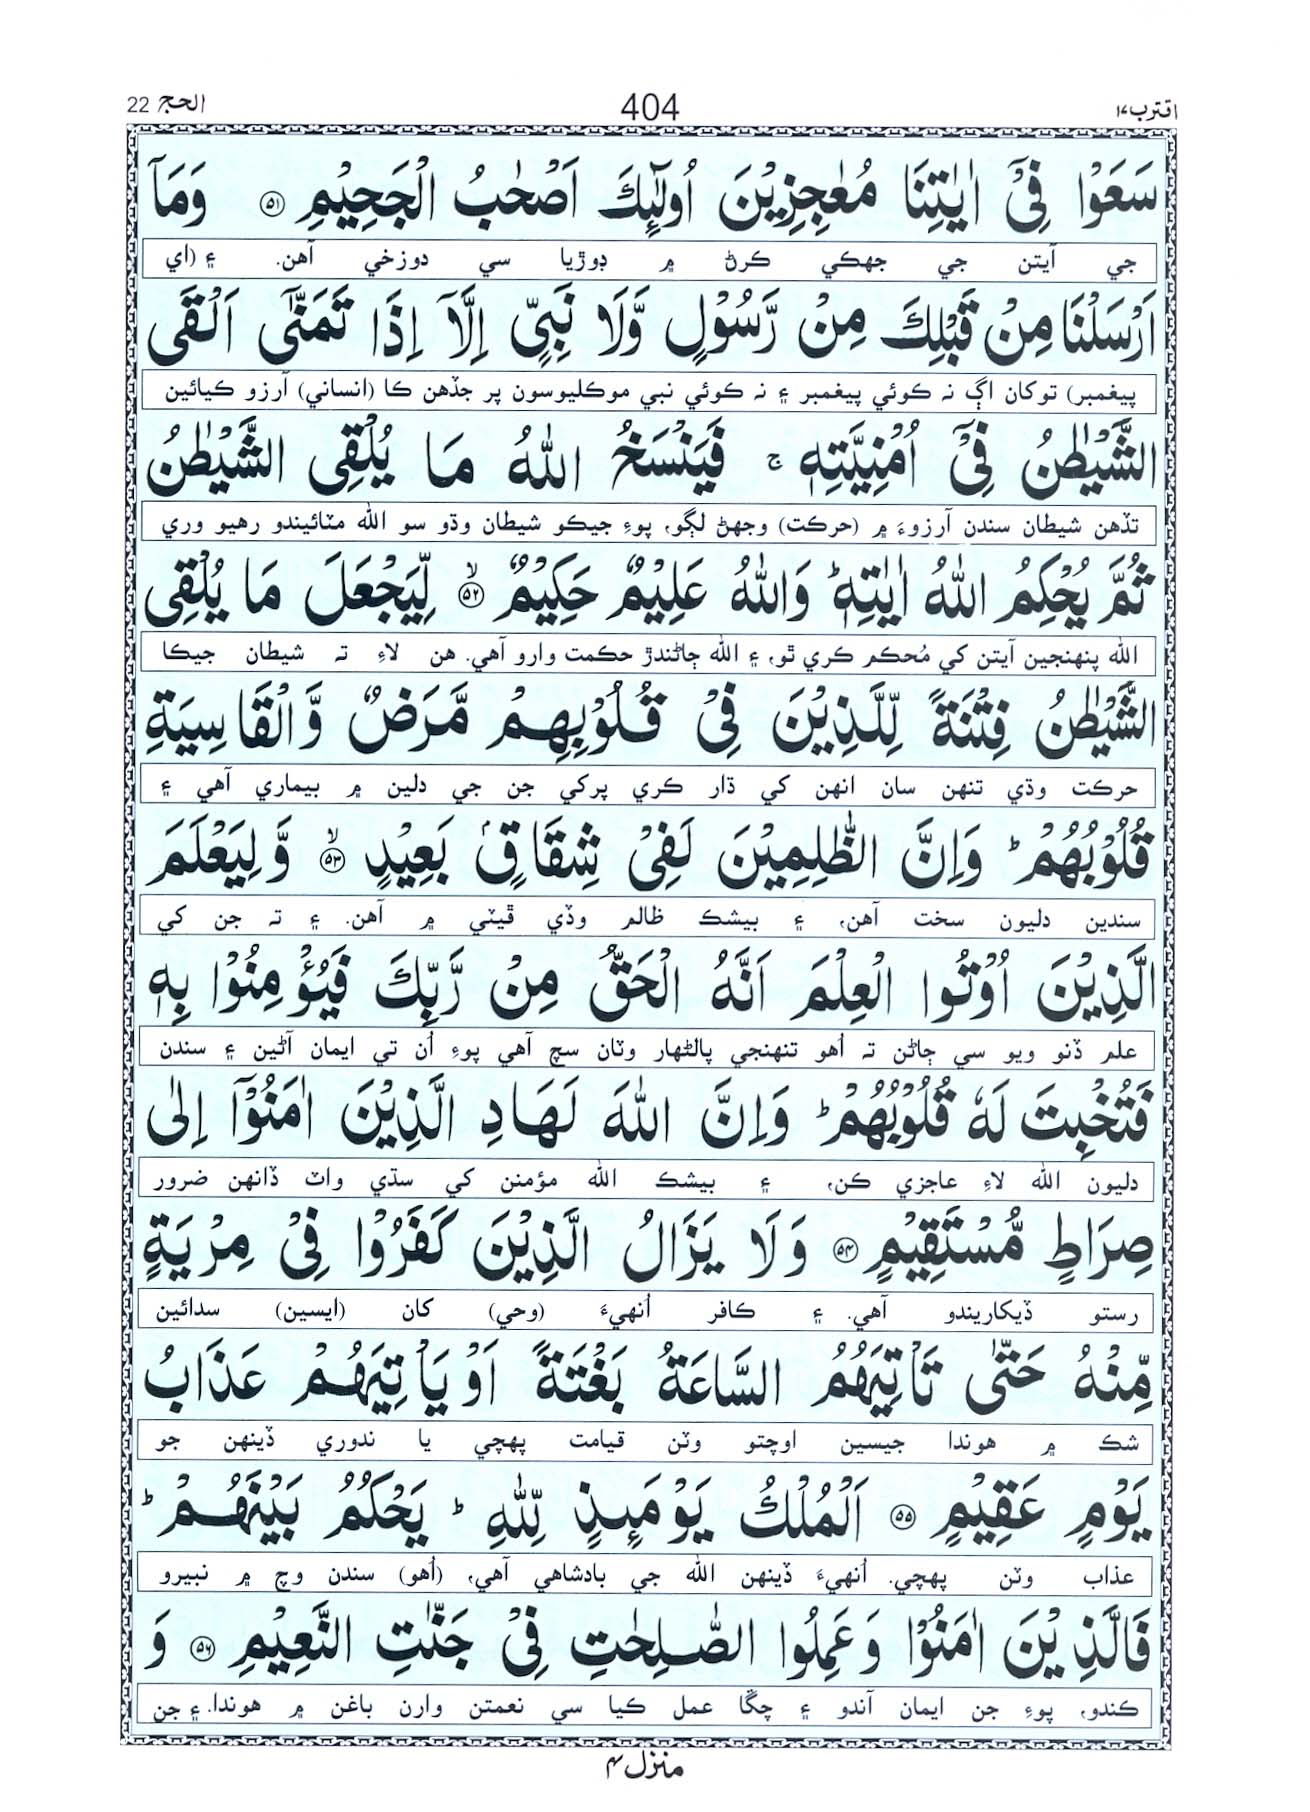 اقترب ١٧
404
الحج 22
سَعَوْا فِیْۤ اٰیٰتِنَا مُعٰجِزِیْنَ اُولٰٓىِٕكَ اَصْحٰبُ الْجَحِیْمِ ۝۵۱ وَمَاۤ
جي آيتن جي جهڪي ڪرڻ ۾ ڊوڙيا سي دوزخي آهن. ۽ (اي
اَرْسَلْنَا مِنْ قَبْلِكَ مِنْ رَّسُوْلٍ وَّلَا نَبِیٍّ اِلَّاۤ اِذَا تَمَنّٰۤی اَلْقَی
پيغمبر) توکان اڳ نہ ڪوئي پيغمبر ۽ نہ ڪوئي نبي موڪليوسون پر جڏهن ڪا (انساني) آرزو ڪيائين
الشَّیْطٰنُ فِیْۤ اُمْنِیَّتِهٖ ۚ فَیَنْسَخُ اللّٰهُ مَا یُلْقِی الشَّیْطٰنُ
تڏهن شيطان سندن آرزوءَ ۾ (حرڪت) وجهڻ لڳو، پوءِ جيڪو شيطان وڌو سو الله مٽائيندو رهيو وري
ثُمَّ یُحْكِمُ اللّٰهُ اٰیٰتِهٖ ؕ وَاللّٰهُ عَلِیْمٌ حَكِیْمٌ ۝۵۲ۙ لِّیَجْعَلَ مَا یُلْقِی
الله پنهنجين آيتن کي مُحڪم ڪري ٿو، ۽ الله ڄاڻندڙ حڪمت وارو آهي. هن لاءِ تہ شيطان جيڪا
الشَّیْطٰنُ فِتْنَةً لِّلَّذِیْنَ فِیْ قُلُوْبِهِمْ مَّرَضٌ وَّالْقَاسِیَةِ
حرڪت وڌي تنهن سان انهن کي ڌار ڪري پرکي جن جي دلين ۾ بيماري آهي ۽
قُلُوْبُهُمْ ؕ وَاِنَّ الظّٰلِمِیْنَ لَفِیْ شِقَاقٍۭ بَعِیْدٍ ۝۵۳ۙ وَّلِیَعْلَمَ
سندين دليون سخت آهن، ۽ بيشڪ ظالم وڏي ڦيٽي ۾ آهن. ۽ تہ جن کي
الَّذِیْنَ اُوْتُوا الْعِلْمَ اَنَّهُ الْحَقُّ مِنْ رَّبِّكَ فَیُؤْمِنُوْا بِهٖ
علم ڏنو ويو سي ڄاڻن تہ اُهو تنهنجي پالڻهار وٽان سچ آهي پوءِ اُن تي ايمان آڻين ۽ سندن
فَتُخْبِتَ لَهٗ قُلُوْبُهُمْ ؕ وَاِنَّ اللّٰهَ لَهَادِ الَّذِیْنَ اٰمَنُوْۤا اِلٰی
دليون الله لاءِ عاجزي ڪن، ۽ بيشڪ الله مؤمنن کي سڌي واٽ ڏانهن ضرور
صِرَاطٍ مُّسْتَقِیْمٍ ۝۵۴ وَلَا یَزَالُ الَّذِیْنَ كَفَرُوْا فِیْ مِرْیَةٍ
رستو ڏيکاريندو آهي. ۽ ڪافر اُنهيءَ (وحي) کان (ايسين) سدائين
مِّنْهُ حَتّٰی تَاْتِیَهُمُ السَّاعَةُ بَغْتَةً اَوْ یَاْتِیَهُمْ عَذَابُ
شڪ ۾ هوندا جيسين اوچتو وٽن قيامت پهچي يا ندوري ڏينهن جو
یَوْمٍ عَقِیْمٍ ۝۵۵ اَلْمُلْكُ یَوْمَىِٕذٍ لِّلّٰهِ ؕ یَحْكُمُ بَیْنَهُمْ ؕ
عذاب وٽن پهچي. اُنهيءَ ڏينهن الله جي بادشاهي آهي، (اُهو) سندن وچ ۾ نبيرو
فَالَّذِیْنَ اٰمَنُوْا وَعَمِلُوا الصّٰلِحٰتِ فِیْ جَنّٰتِ النَّعِیْمِ ۝۵۶ وَ
ڪندو، پوءِ جن ايمان آندو ۽ چڱا عمل ڪيا سي نعمتن وارن باغن ۾ هوندا. ۽ جن
منزل ٤